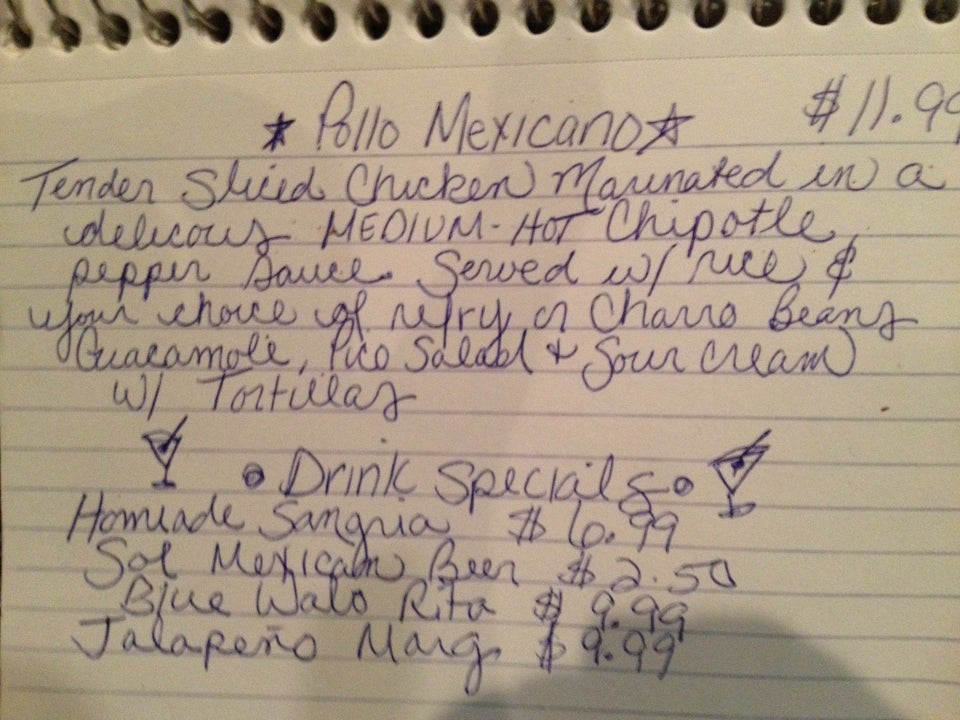 ★ Pollo Mexicano ★ $11.99
Tender Sliced Chicken Marinated in a
delicous MEDIUM-HOT Chipotle
pepper sauce. Served w/ rice &
your choice of refry or Charro Beans
Guacamole, Pico Salad & Sour Cream
w/ Tortillas
• Drink Specials •
Homeade Sangria $6.99
Sol Mexican Beer $2.50
Blue Walo Rita $9.99
Jalapeño Marg $9.99